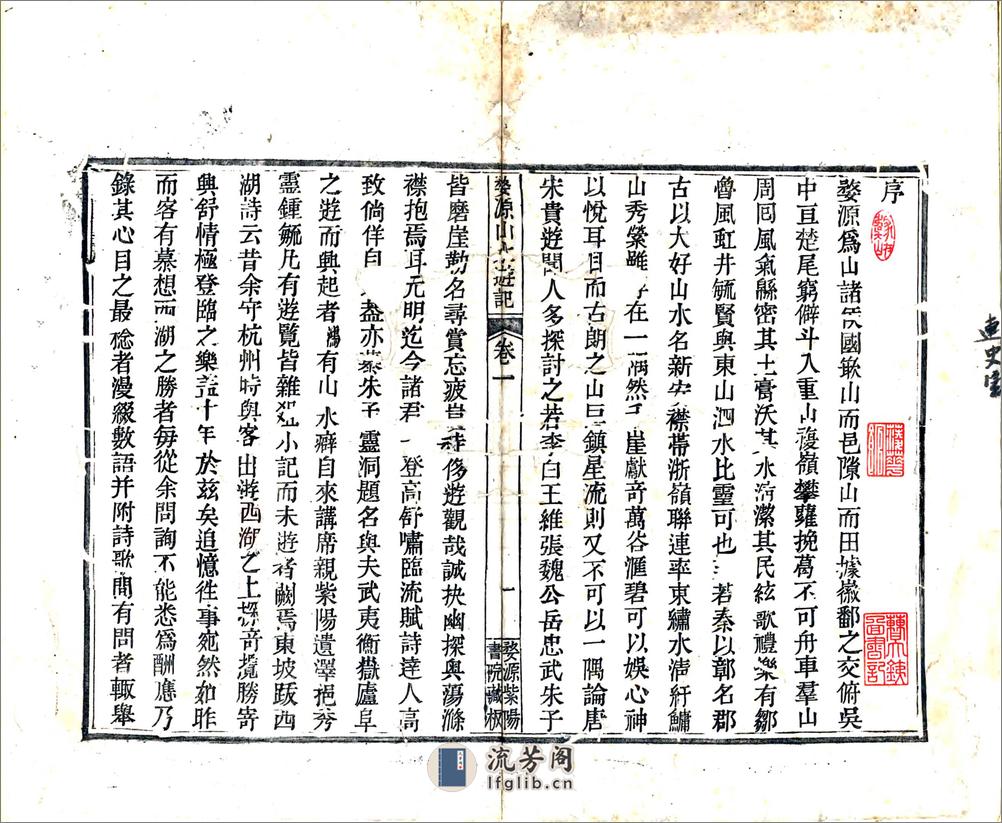 序
婺源爲山諸矦國嶔山而邑隙山而田據徽鄱之交俯吳
中亘楚尾窮僻斗入重山複嶺攀蘿挽葛不可舟車羣山
周囘風氣緜密其土膏沃其水淸潔其民絃歌禮樂有鄒
魯風虹井毓賢與東山泗水比靈可也 若秦以鄣名郡
古以大好山水名新安襟帶浙嶺聯連率東繡水淸紆鱅
山秀縈雖 在一隅然千崖獻奇萬谷滙碧可以娛心神
以悅耳目而古朗之山巨鎮星流則又不可以一隅論唐
宋貴遊閒人多探討之若李白王維張魏公岳忠武朱子
婺源山水遊記
卷一
一
婺源紫陽
書院藏板
皆磨崖勒名尋賞忘疲豈非侈遊觀哉誠抉幽探奥蕩滌
襟抱焉耳元明迄今諸君 登高舒嘯臨流賦詩達人高
致倘佯自 盡亦慕朱子 靈洞題名與夫武夷衡嶽廬阜
之遊而興起者 有山水癖自來講席親紫陽遺澤挹秀
靈鍾毓凡有遊覽皆雜 小記而未遊者闕焉東坡跋西
湖詩云昔余守杭州時與客出遊西湖之上探奇攬勝寄
興舒情極登臨之樂葢十年於茲矣追憶徃事宛然如昨
而客有慕想西湖之勝者每從余問詢不能悉爲酬應乃
錄其心目之最 者漫綴數語并附詩歌間有問者輒舉
流芳阁
lfglib.cn